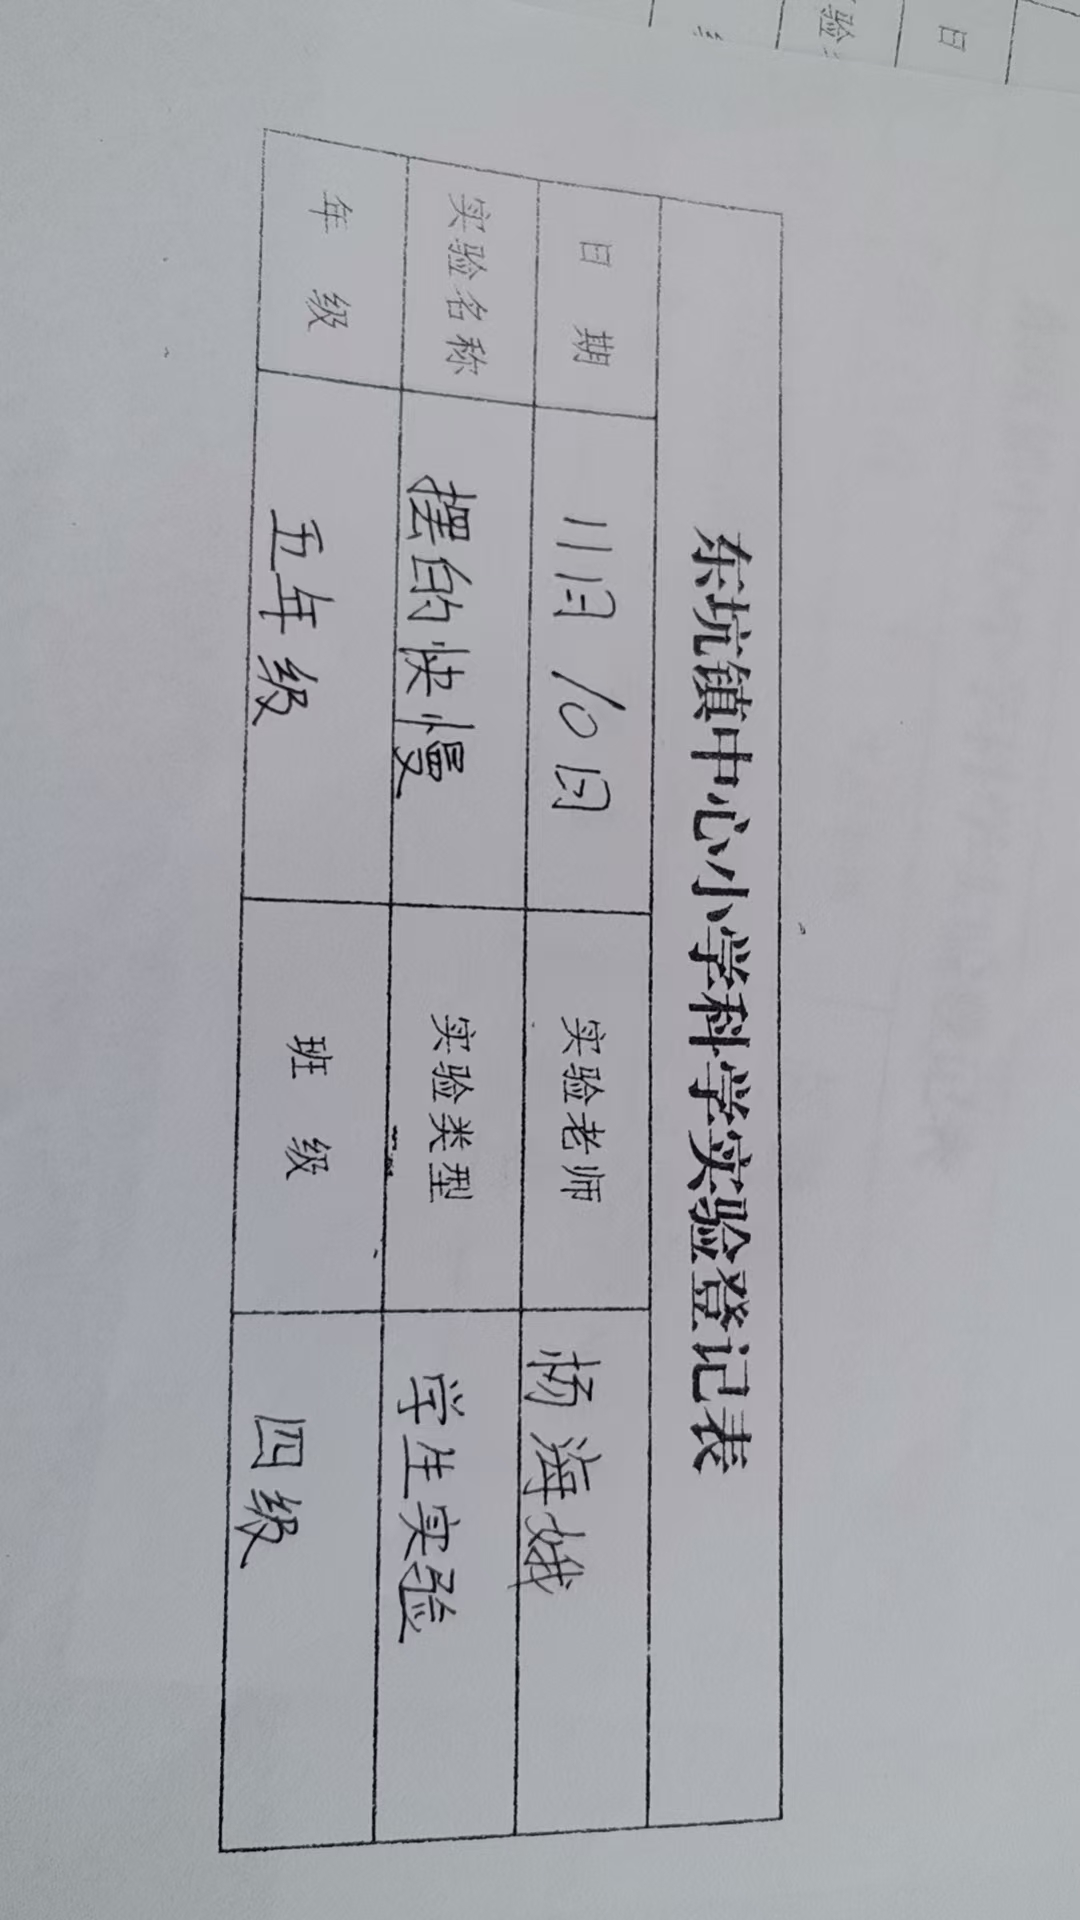 东坑镇中心小学科学实验登记表
日 期 11月10日 实验老师 杨海娥
实验名称 摆的快慢 实验类型 学生实验
年 级 五年级 班 级 四级
日
验